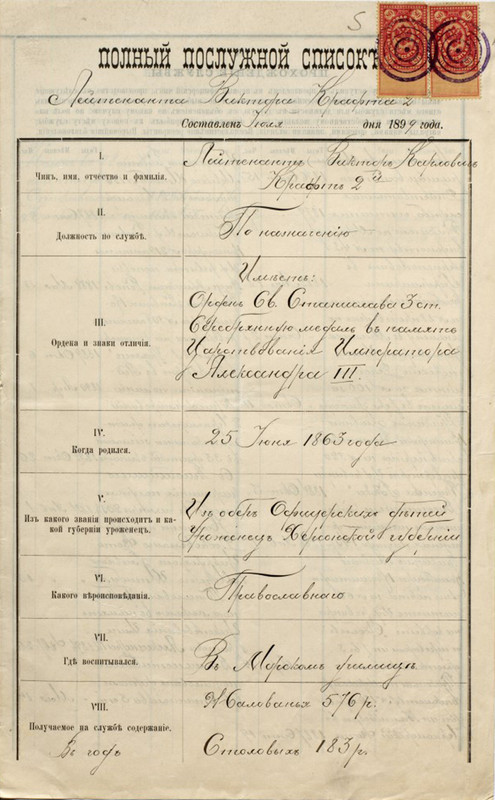 5
ПОЛНЫЙ ПОСЛУЖНОЙ СПИСОКЪ
Лейтенанта Виктора Крафта 2
Составленъ Іюля дня 1899 года.
I.
Чинъ, имя, отчество и фамилія.
Лейтенантъ Викторъ Карловичъ
Крафтъ 2й
II.
Должность по службѣ.
По назначенію
III.
Ордена и знаки отличія.
Имѣетъ:
Орденъ Св. Станислава 3 ст.
Серебрянную медаль въ память
Царствованія Императора
Александра III.
IV.
Когда родился.
25 Іюня 1863 года
V.
Изъ какого званія происходитъ и ка-
кой губерніи уроженецъ.
Изъ оберъ Офицерскихъ дѣтей
Уроженецъ Херсонской губерніи
VI.
Какого вѣроисповѣданія.
Православнаго
VII.
Гдѣ воспитывался.
Въ Морскомъ училищѣ
VIII.
Получаемое на службѣ содержаніе.
Въ годъ
Жалованья 576 р.
Столовыхъ 183 р.